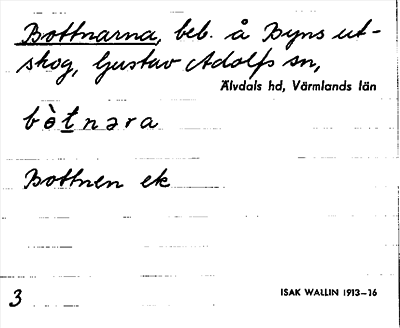 Bottnarna, beb. å Byns ut-
skog, Gustav Adolfs sn,
Älvdals hd, Värmlands län
bòtnəra
Bottnen ek
3
ISAK WALLIN 1913–16